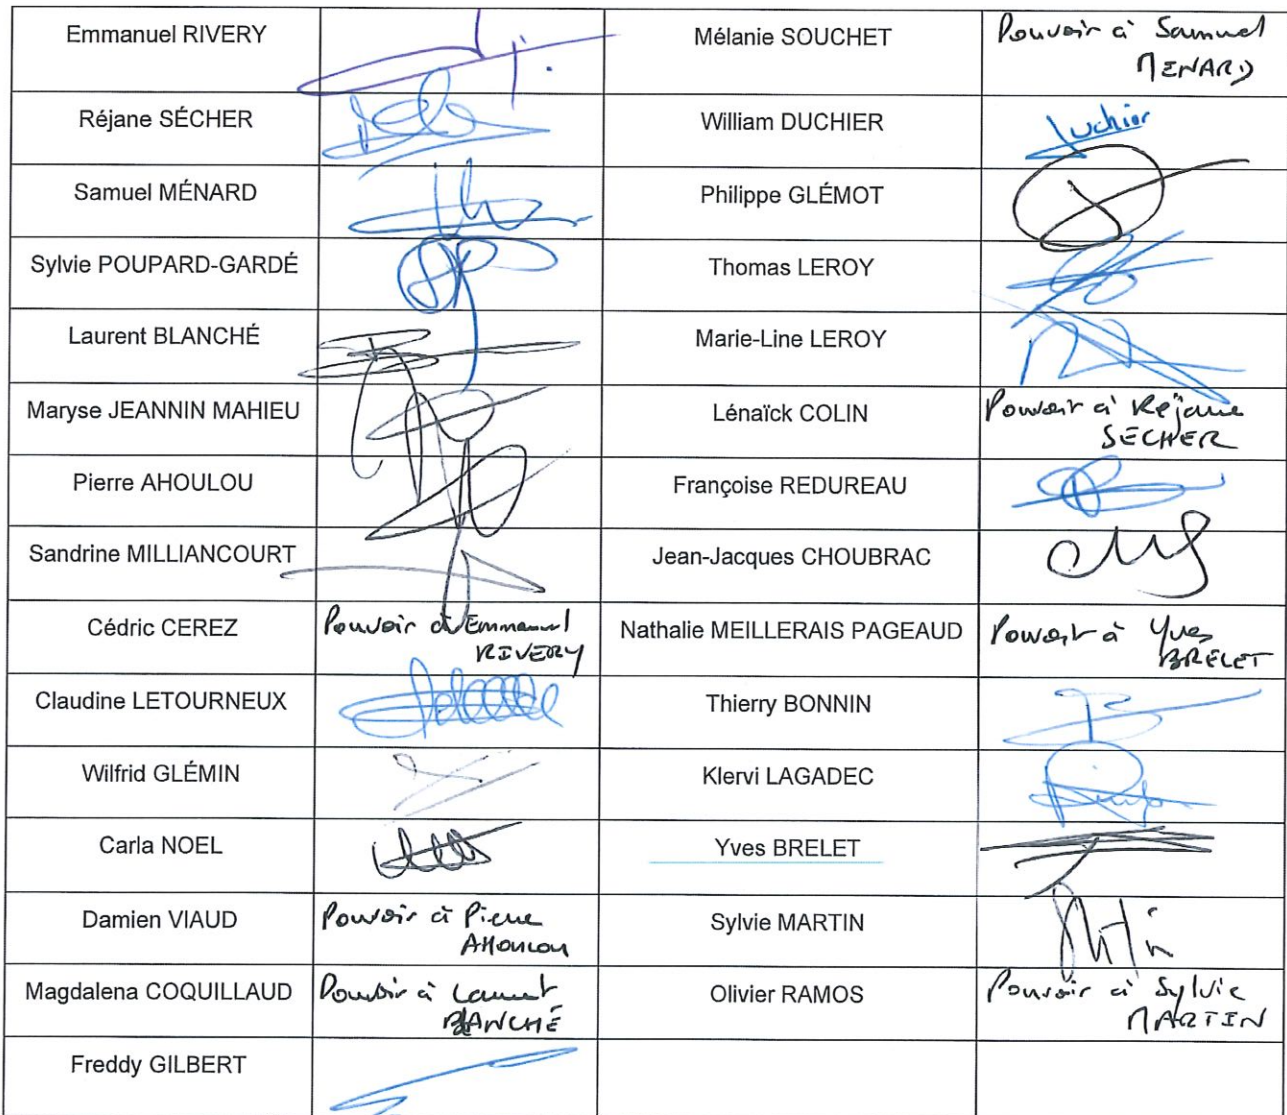 Emmanuel RIVERY
Mélanie SOUCHET
Pouvoir à Samuel
MENARD
Réjane SÉCHER
William DUCHIER
Duchier
Samuel MÉNARD
Philippe GLÉMOT
Sylvie POUPARD-GARDÉ
Thomas LEROY
Laurent BLANCHÉ
Marie-Line LEROY
Maryse JEANNIN MAHIEU
Lénaïck COLIN
Pouvoir à Réjane
SECHER
Pierre AHOULOU
Françoise REDUREAU
Sandrine MILLIANCOURT
Jean-Jacques CHOUBRAC
Cédric CEREZ
Pouvoir à Emmanuel
RIVERY
Nathalie MEILLERAIS PAGEAUD
Pouvoir à Yves
BRELET
Claudine LETOURNEUX
Thierry BONNIN
Wilfrid GLÉMIN
Klervi LAGADEC
Carla NOEL
Yves BRELET
Damien VIAUD
Pouvoir à Pierre
AHOULOU
Sylvie MARTIN
Magdalena COQUILLAUD
Pouvoir à Laurent
BLANCHÉ
Olivier RAMOS
Pouvoir à Sylvie
MARTIN
Freddy GILBERT